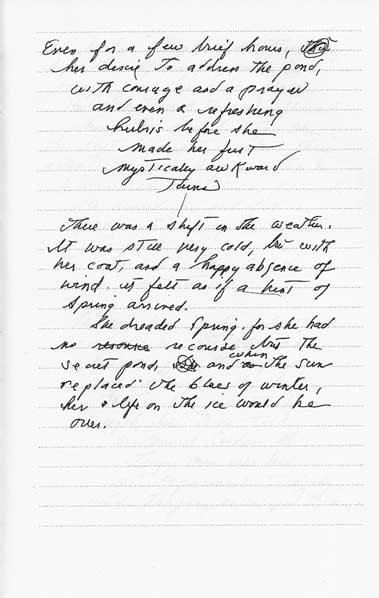 Even for a few brief hours,
her desire to address the pond,
with courage and a prayer
and even a refreshing
hubris before she
made her first
mystically awkward
turns
There was a shift in the weather.
It was still very cold, but with
her coat, and a happy absence of
wind. it felt as if a hint of
Spring arrived.
She dreaded Spring. for she had
no recourse but the
secret pond, and when the sun
replaced the blues of winter,
her life on the ice would be
over.